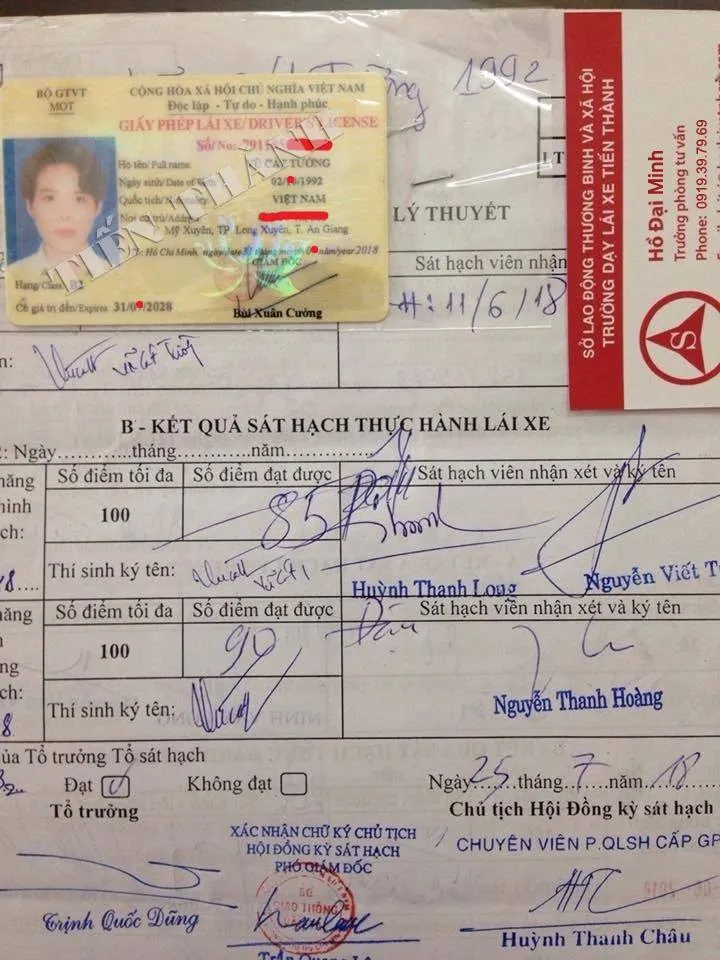 1992
BỘ GTVT
MOT
CỘNG HÒA XÃ HỘI CHỦ NGHĨA VIỆT NAM
Độc lập - Tự do - Hạnh phúc
GIẤY PHÉP LÁI XE/ DRIVER'S LICENSE
Số/No: 791
Họ tên/ Full name: VŨ CÁT TƯỜNG
Ngày sinh/Date of Birth 02/10/1992
Quốc tịch/Nationality VIỆT NAM
Nơi cư trú/Address
Mỹ Xuyên, TP Long Xuyên, T. An Giang
Hồ Chí Minh, ngày/date tháng/month năm/year 2018
GIÁM ĐỐC
Hạng/Class: B2
Có giá trị đến/Expires: 2028
Bùi Xuân Cường
TIẾN THÀNH
SỞ LAO ĐỘNG THƯƠNG BINH VÀ XÃ HỘI
TRƯỜNG DẠY LÁI XE TIẾN THÀNH
Hồ Đại Minh
Trưởng phòng tư vấn
Phone: 0919.39.79.69
S
LÝ THUYẾT
Sát hạch viên nhận
11/6/18
B - KẾT QUẢ SÁT HẠCH THỰC HÀNH LÁI XE
2: Ngày............tháng............năm...............
Số điểm tối đa
Số điểm đạt được
Sát hạch viên nhận xét và ký tên
100
85
Thí sinh ký tên:
Huỳnh Thanh Long
Nguyễn Viết
Số điểm tối đa
Số điểm đạt được
Sát hạch viên nhận xét và ký tên
100
90
Đậu
Thí sinh ký tên:
Nguyễn Thanh Hoàng
của Tổ trưởng Tổ sát hạch
Đạt
Không đạt
Ngày 25 tháng 7 năm 18
Tổ trưởng
Chủ tịch Hội Đồng kỳ sát hạch
XÁC NHẬN CHỮ KÝ CHỦ TỊCH
HỘI ĐỒNG KỲ SÁT HẠCH
PHÓ GIÁM ĐỐC
CHUYÊN VIÊN P.QLSH CẤP GP
SỞ
GIAO THÔNG
Trịnh Quốc Dũng
Huỳnh Thanh Châu
Trần Quang